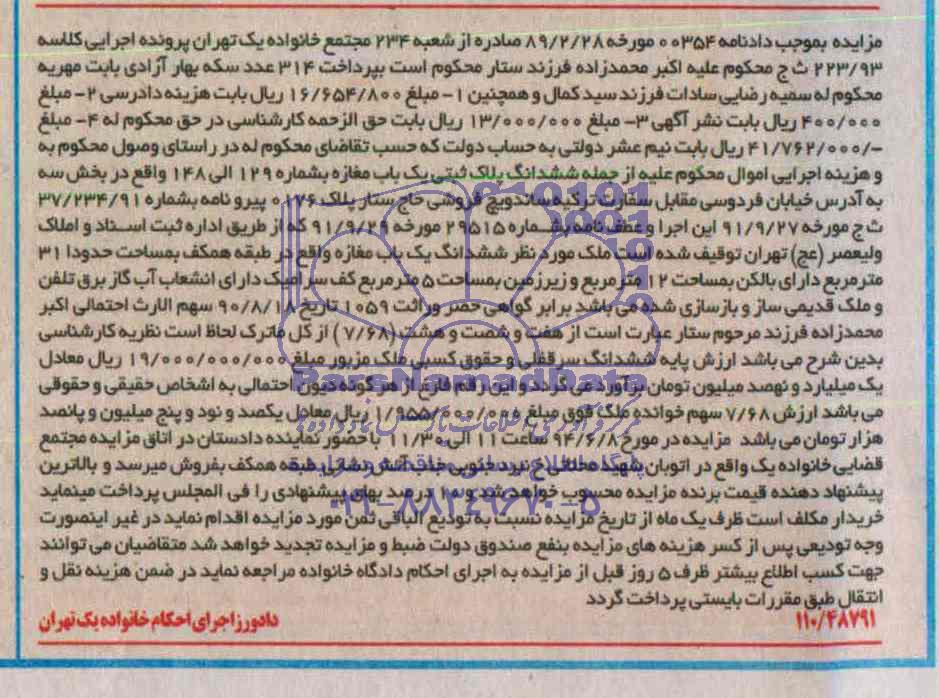 مزایده بموجب دادنامه ۰۰۳۵۴ مورخه ۸۹/۲/۲۸ صادره از شعبه ۲۳۴ مجتمع خانواده یک تهران پرونده اجرایی کلاسه
۲۲۳/۹۳ ث ج محکوم علیه اکبر محمدزاده فرزند ستار محکوم است بپرداخت ۳۱۴ عدد سکه بهار آزادی بابت مهریه
محکوم له سمیه رضایی سادات فرزند سید کمال و همچنین ۱- مبلغ ۱۶/۶۵۴/۸۰۰ ریال بابت هزینه دادرسی ۲- مبلغ
۴۰۰/۰۰۰ ریال بابت نشر آگهی ۳- مبلغ ۱۳/۰۰۰/۰۰۰ ریال بابت حق الزحمه کارشناسی در حق محکوم له ۴- مبلغ
۴۱/۷۶۲/۰۰۰/- ریال بابت نیم عشر دولتی به حساب دولت که حسب تقاضای محکوم له در راستای وصول محکوم به
و هزینه اجرایی اموال محکوم علیه از جمله ششدانگ پلاک ثبتی یک باب مغازه بشماره ۱۲۹ الی ۱۴۸ واقع در بخش سه
به آدرس خیابان فردوسی مقابل سفارت ترکیه ساندویچ فروشی حاج ستار پلاک ۰۱۷۶ پیرو نامه بشماره ۳۷/۲۳۴/۹۱
ث ج مورخه ۹۱/۹/۲۷ این اجرا و عطف نامه بشماره ۲۹۵۱۵ مورخه ۹۱/۹/۲۹ که از طریق اداره ثبت اسناد و املاک
ولیعصر (عج) تهران توقیف شده است ملک مورد نظر ششدانگ یک باب مغازه واقع در طبقه همکف بمساحت حدودا ۳۱
مترمربع دارای بالکن بمساحت ۱۲ مترمربع و زیرزمین بمساحت ۵ مترمربع کف سرامیک دارای انشعاب آب گاز برق تلفن
و ملک قدیمی ساز و بازسازی شده می باشد برابر گواهی حصر وراثت ۱۰۵۹ تاریخ ۹۰/۸/۱۸ سهم الارث احتمالی اکبر
محمدزاده فرزند مرحوم ستار عبارت است از هفت و شصت و هشت (۷/۶۸) از کل ماترک لحاظ است نظریه کارشناسی
بدین شرح می باشد ارزش پایه ششدانگ سرقفلی و حقوق کسبی ملک مزبور مبلغ ۱۹/۰۰۰/۰۰۰/۰۰۰ ریال معادل
یک میلیارد و نهصد میلیون تومان برآورد می گردد و این رقم فارغ از هر گونه دیون احتمالی به اشخاص حقیقی و حقوقی
می باشد ارزش ۷/۶۸ سهم خوانده ملک فوق مبلغ ۱/۹۵۵/۰۰۰/۰۰۰ ریال معادل یکصد و نود و پنج میلیون و پانصد
هزار تومان می باشد مزایده در مورخ ۹۴/۶/۸ ساعت ۱۱ الی ۱۱/۳۰ با حضور نماینده دادستان در اتاق مزایده مجتمع
قضایی خانواده یک واقع در اتوبان شهید محلاتی خ نبرد جنوبی جنب آتش نشانی طبقه همکف بفروش میرسد و بالاترین
پیشنهاد دهنده قیمت برنده مزایده محسوب خواهد شد و ۱۰ درصد بهای پیشنهادی را فی المجلس پرداخت مینماید
خریدار مکلف است ظرف یک ماه از تاریخ مزایده نسبت به تودیع الباقی ثمن مورد مزایده اقدام نماید در غیر اینصورت
وجه تودیعی پس از کسر هزینه های مزایده بنفع صندوق دولت ضبط و مزایده تجدید خواهد شد متقاضیان می توانند
جهت کسب اطلاع بیشتر ظرف ۵ روز قبل از مزایده به اجرای احکام دادگاه خانواده مراجعه نماید در ضمن هزینه نقل و
انتقال طبق مقررات بایستی پرداخت گردد
۱۱۰/۴۸۷۹۱ دادورز اجرای احکام خانواده یک تهران
ParsNamadData
۰۲۱-۸۸۳۴۹۶۷۰-۵